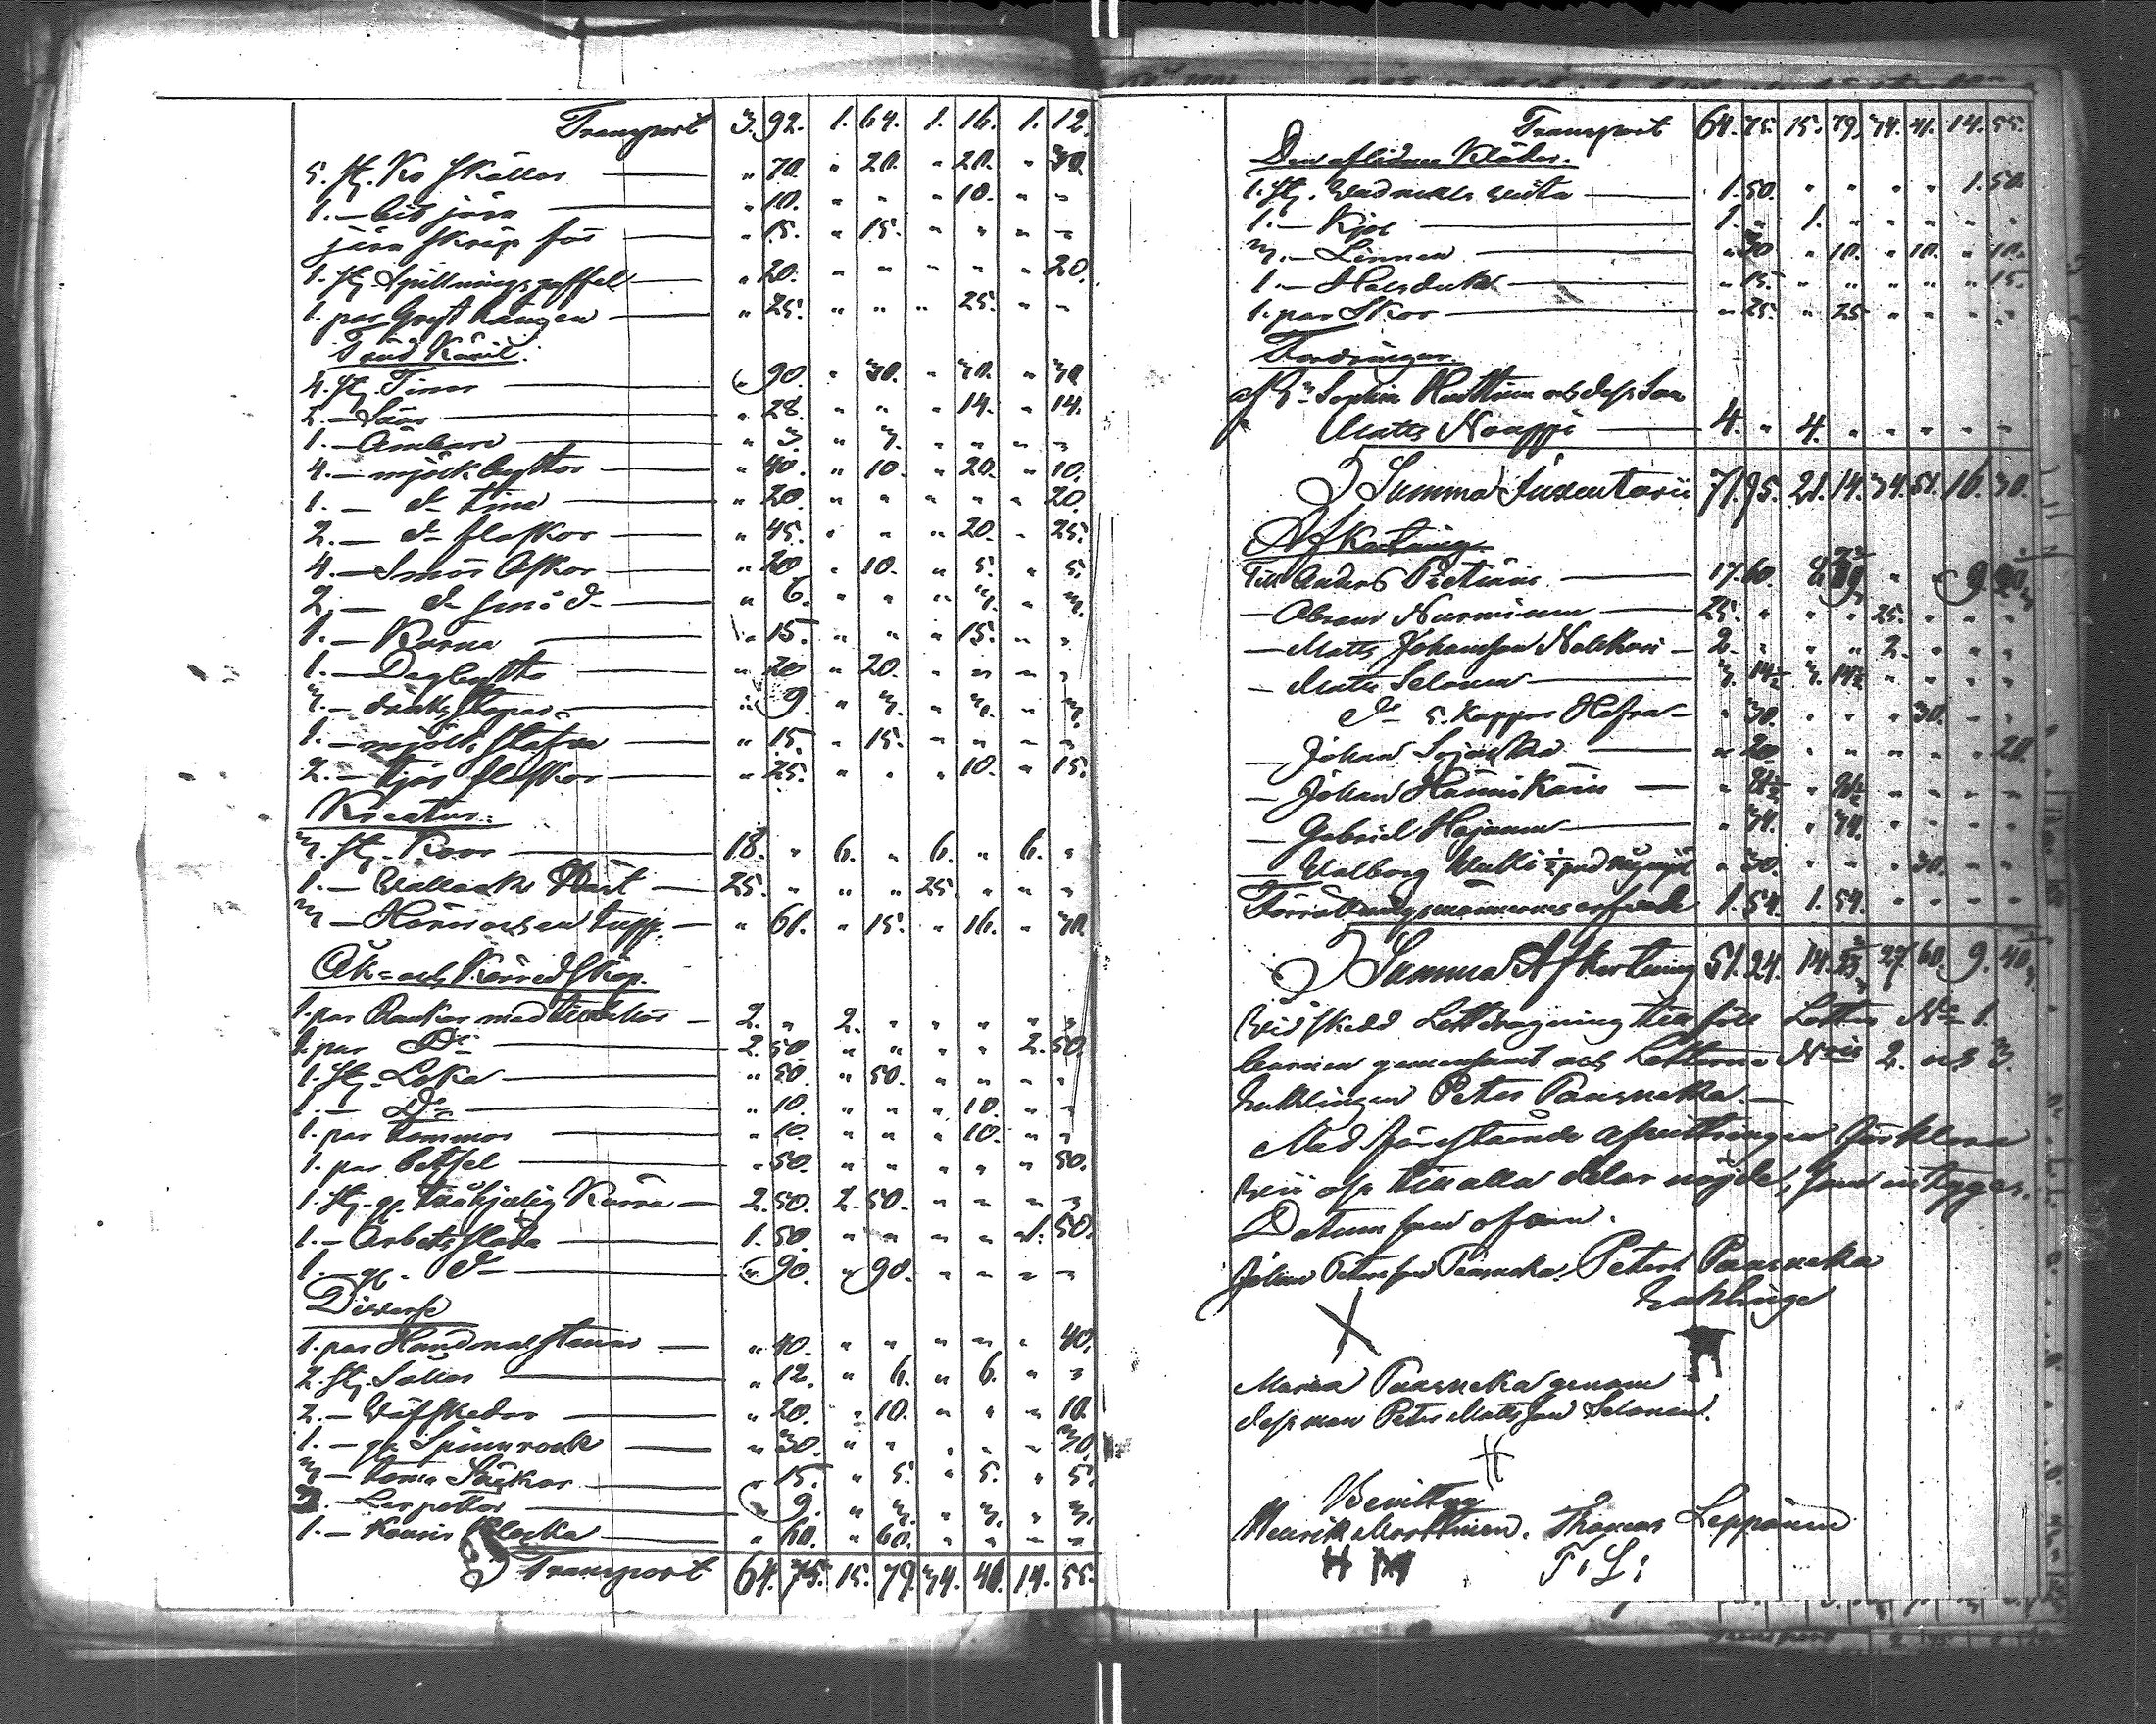 Transport 3. 92. 1. 64. 1. 16. 1. 12.
5. st. Ko skällor " 70. " 20. " 20. " 30.
1. — bit järn " 10. " " " 10. " "
järn skräp för " 15. " 15. " " " "
1. st. Spillnings gaffel " 20. " " " " " 20.
1. par Gryt hängen " 25. " " " 25. " "
Träd Käril.
4. st. Tinor " 90. " 30. " 30. " 30.
2. — Såar " 28. " " " 14. " 14.
1. — Ämbare " 3. " 3. " " " "
4. — mjölk byttor " 40. " 10. " 20. " 10.
1. — d:o tina " 20. " " " " " 20.
2. — d:o flaskor " 45. " " " 20. " 25.
4. — Smör Askar " 20. " 10. " 5. " 5.
2. — d:o små d:o " 6. " " " 3. " 3.
1. — Kärna " 15. " " " 15. " "
1. — Degbytta " 20 " 20. " " " "
3. — dricks stopar " 9. " 3. " 3. " 3.
1. — mjölk " 15. " 15. " " " "
2. — tjär flaskor " 25. " " " 10. " 15.
Kreatur:
3. st. Koor 18. " 6. " 6. " 6. "
1. — Wallack Häst 25. " " " 25. " " "
3 — Hönor och en tupp " 61. " 15. " 16. " 30.
Åk- och Körredskap.
1. par Bankor med 2. " 2. " " " " "
1. par D:o 2. 50. " " " " 2. 50.
1. st. Loka " 50. " 50. " " " "
1. — D:o " 10. " " " 10. " "
1. par tömmor " 10. " " " 10. " "
1. par betsel " 50. " " " " " 50.
1. st. g. tvåhjulig Kärra 2. 50. 2. 50. " " " "
1. — Arbetssläda 1. 50. " " " " 1. 50.
1. — g. d:o " 90. " 90. " " " "
Diverse
1. par Handqvarnstenar " 40. " " " " " 40.
2. st. Sållar " 12. " 6. " 6. " "
2. — Wäfskedar " 20. " 10. " " " 10.
1. — g. Spinnrock " 30. " " " " " 30.
3 — toma Säckar " 15. " 5. " 5. " 5.
3. — Lerpottor " 9. " 3. " 3. " 3.
1. — Klocka " 60. " 60. " " " "
Transport 64. 75. 15. 79. 34. 41. 14. 55.
Transport 64. 75. 15. 79. 34. 41. 14. 55.
Den aflidnes Kläder.
1. st. Wadmals 1. 50. " " " " 1. 50.
1. — Kjol 1. " 1. " " " " "
3. — Linnen " 30 " 10. " 10. " 10.
1. — Halsduk " 15. " " " " " 15.
1. par Skor " 25. " 25 " " " "
Fordringar.
af Sophia och dess Son
Matts Nouppi 4. " 4. " " " " "
Summa Inventarii 71. 95. 21. 14. 34. 51. 16. 30.
Afkortning
Till Anders Pietiäin 17. 60. " " 9.
— Abram Nurminen 25. " " " 25. " " "
— Matts Johansson 2. " " " 2. " " "
— Matts Selonen 3. 14½ 3. 14½ " " " "
d:o 5. Kappar Hafra " 30. " " " 30. " "
— Johan " 20. " " " " " 20.
— Johan Hännikäin " " " " " "
— Gabriel " 34. " 34. " " " "
— Walborg ½ pud rågmjöl " 30. " " " 30. " "
Förrättningsmännernes arfvode 1. 54. 1. 54. " " " "
Summa Afkortning 51. 24. 14. 27. 60. 9.
Wid skedd Lottdragning tillföll Lotten N:o 1.
barnen gemensamt och Lotterne N:ris 2. och 3.
Enklingen Petter Paasneka.
Med förestående afvittringen förklara
wii oss till alla delar nöjde, som intygas.
Datum som ofvan.
Johan Pettersson Paasneka. Petter Paasneka
Enklinge
X
Maria Paasneka genom
dess man Petter Mattsson Selonen.
Bevittna
Henrik Marttinen. Thomas Leppänen
T. L: